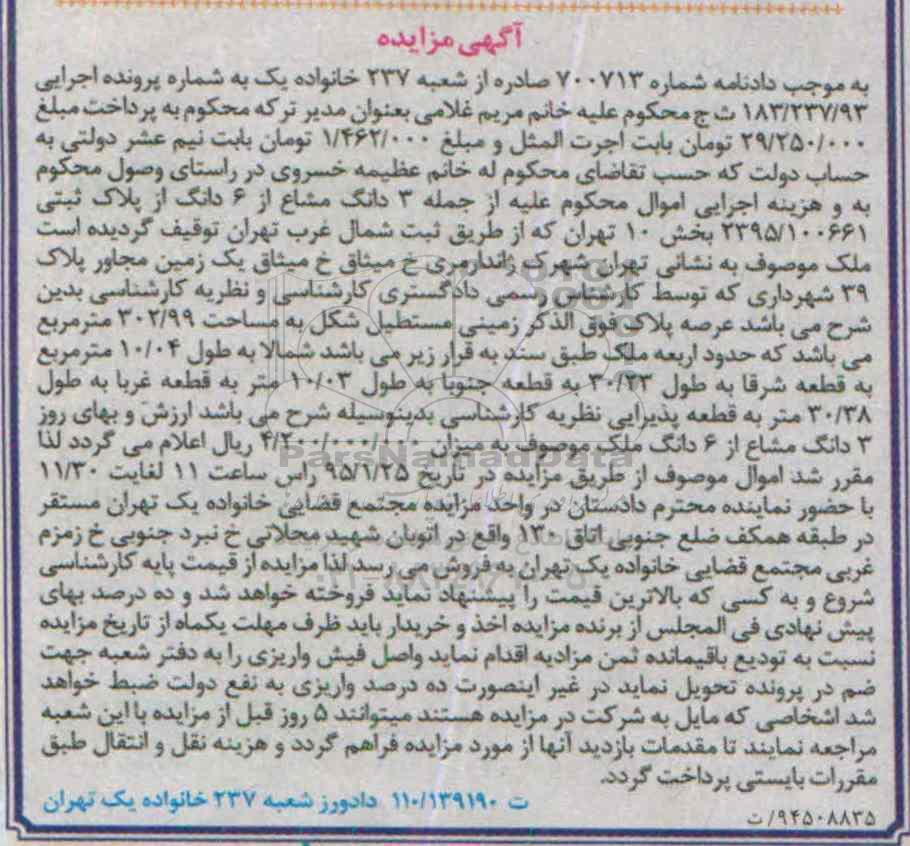 آگهی مزایده
به موجب دادنامه شماره ۷۰۰۷۱۳ صادره از شعبه ۲۳۷ خانواده یک به شماره پرونده اجرایی
۱۸۳/۲۳۷/۹۳ ث ج محکوم علیه خانم مریم غلامی بعنوان مدیر ترکه محکوم به پرداخت مبلغ
۲۹/۲۵۰/۰۰۰ تومان بابت اجرت المثل و مبلغ ۱/۴۶۲/۰۰۰ تومان بابت نیم عشر دولتی به
حساب دولت که حسب تقاضای محکوم له خانم عظیمه خسروی در راستای وصول محکوم
به و هزینه اجرایی اموال محکوم علیه از جمله ۳ دانگ مشاع از ۶ دانگ از پلاک ثبتی
۲۳۹۵/۱۰۰۶۶۱ بخش ۱۰ تهران که از طریق ثبت شمال غرب تهران توقیف گردیده است
ملک موصوف به نشانی تهران شهرک ژاندارمری خ میثاق خ میثاق یک زمین مجاور پلاک
۳۹ شهرداری که توسط کارشناس رسمی دادگستری کارشناسی و نظریه کارشناسی بدین
شرح می باشد عرصه پلاک فوق الذکر زمینی مستطیل شکل به مساحت ۳۰۲/۹۹ مترمربع
می باشد که حدود اربعه ملک طبق سند به قرار زیر می باشد شمالا به طول ۱۰/۰۴ مترمربع
به قطعه شرقا به طول ۳۰/۲۳ به قطعه جنوبا به طول ۱۰/۰۳ متر به قطعه غربا به طول
۳۰/۳۸ متر به قطعه پذیرایی نظریه کارشناسی بدینوسیله شرح می باشد ارزش و بهای روز
۳ دانگ مشاع از ۶ دانگ ملک موصوف به میزان ۴/۲۰۰/۰۰۰/۰۰۰ ریال اعلام می گردد لذا
مقرر شد اموال موصوف از طریق مزایده در تاریخ ۹۵/۲/۲۵ راس ساعت ۱۱ لغایت ۱۱/۳۰
با حضور نماینده محترم دادستان در واحد مزایده مجتمع قضایی خانواده یک تهران مستقر
در طبقه همکف ضلع جنوبی اتاق ۱۳۰ واقع در اتوبان شهید محلاتی خ نبرد جنوبی خ زمزم
غربی مجتمع قضایی خانواده یک تهران به فروش می رسد لذا مزایده از قیمت پایه کارشناسی
شروع و به کسی که بالاترین قیمت را پیشنهاد نماید فروخته خواهد شد و ده درصد بهای
پیش نهادی فی المجلس از برنده مزایده اخذ و خریدار باید ظرف مهلت یکماه از تاریخ مزایده
نسبت به تودیع باقیمانده ثمن مزادیه اقدام نماید واصل فیش واریزی را به دفتر شعبه جهت
ضم در پرونده تحویل نماید در غیر اینصورت ده درصد واریزی به نفع دولت ضبط خواهد
شد اشخاصی که مایل به شرکت در مزایده هستند میتوانند ۵ روز قبل از مزایده با این شعبه
مراجعه نمایند تا مقدمات بازدید آنها از مورد مزایده فراهم گردد و هزینه نقل و انتقال طبق
مقررات بایستی پرداخت گردد.
ت ۱۱۰/۱۳۹۱۹۰ دادورز شعبه ۲۳۷ خانواده یک تهران
۹۴۵۰۸۸۳۵/ت
ParsNamadData